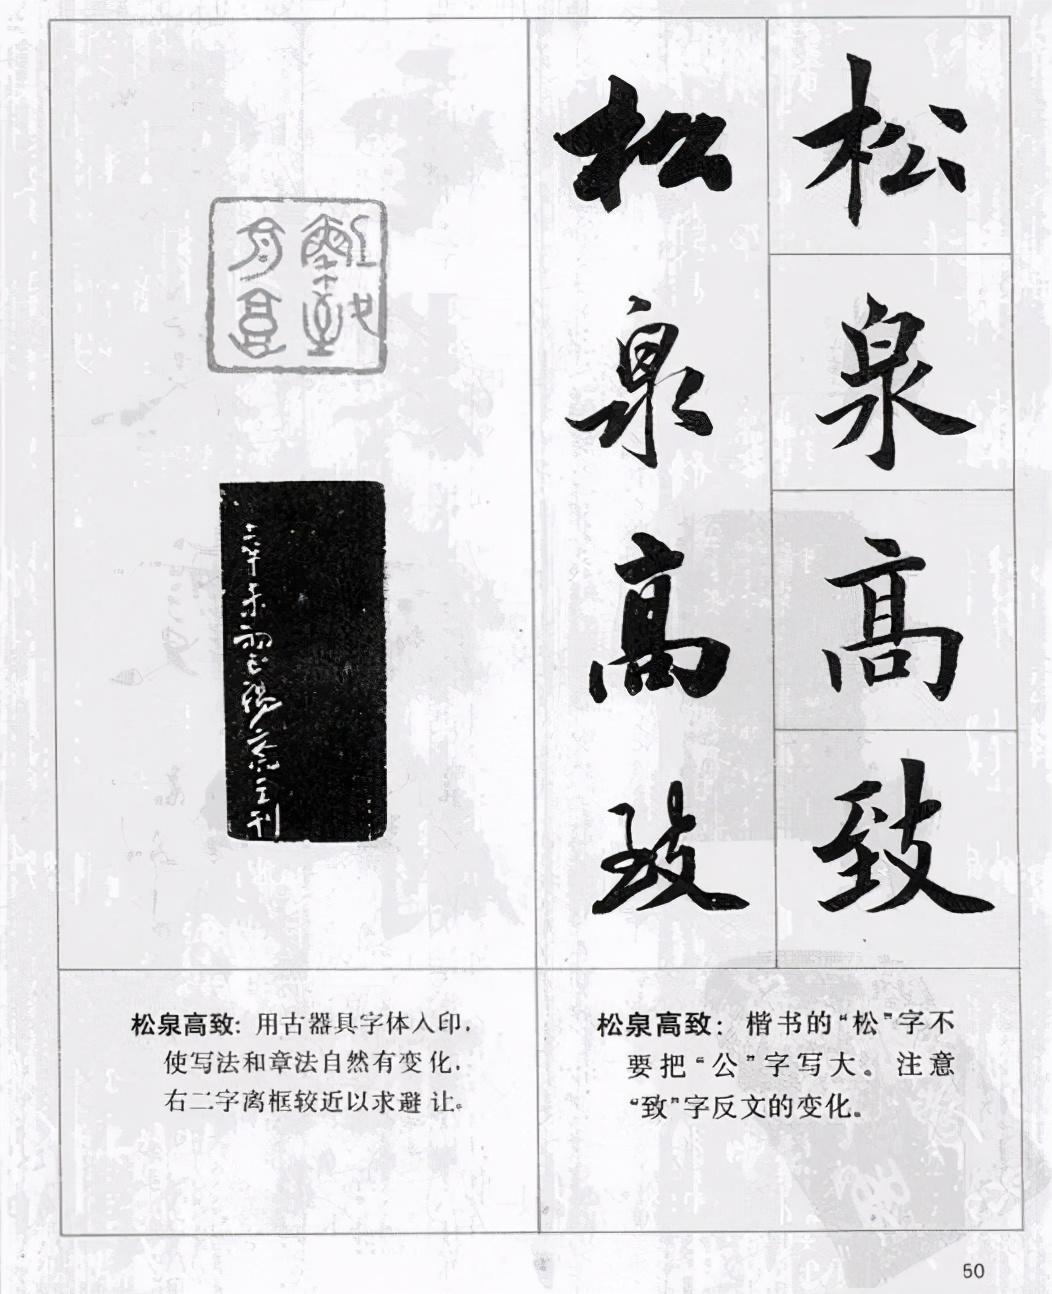 松泉高致
松泉高致
松泉高致：楷书的“松”字不
要把“公”字写大。注意
“致”字反文的变化。
松泉高致：用古器具字体入印，
使写法和章法自然有变化，
右二字离框较近以求避让。
50